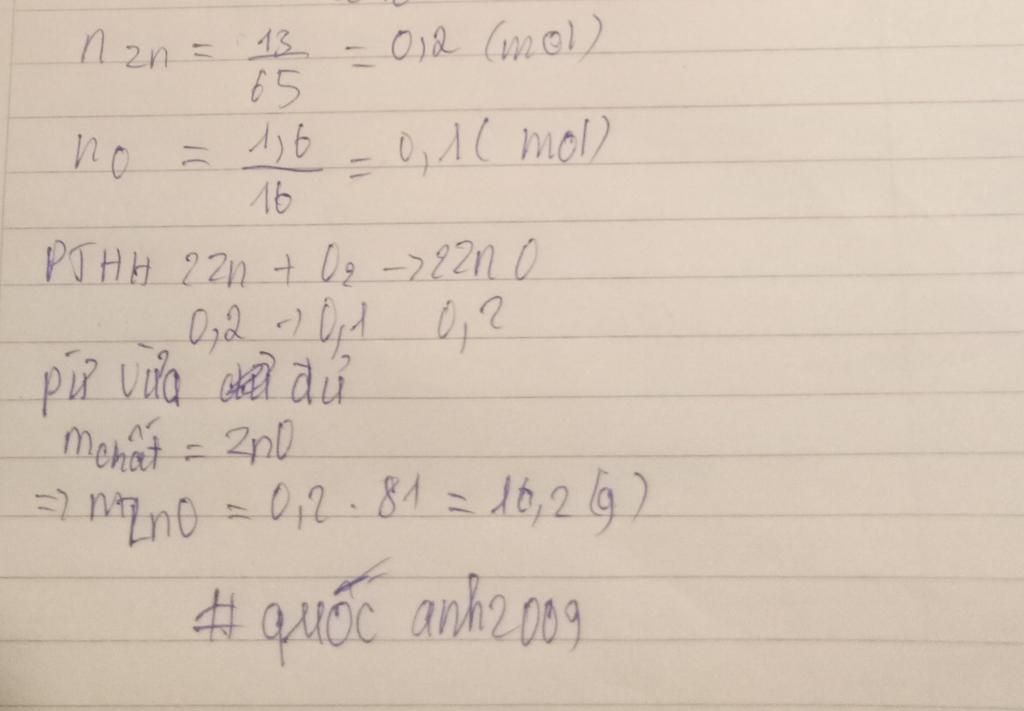 n Zn = 13/65 = 0,2 (mol)
n O = 1,6/16 = 0,1 ( mol)
PTHH 2Zn + O₂ → 2Zn O
0,2 → 0,1 0,2
pứ vừa đủ
m chất = ZnO
=> m ZnO = 0,2 . 81 = 16,2 (g)
# quốc anh2009